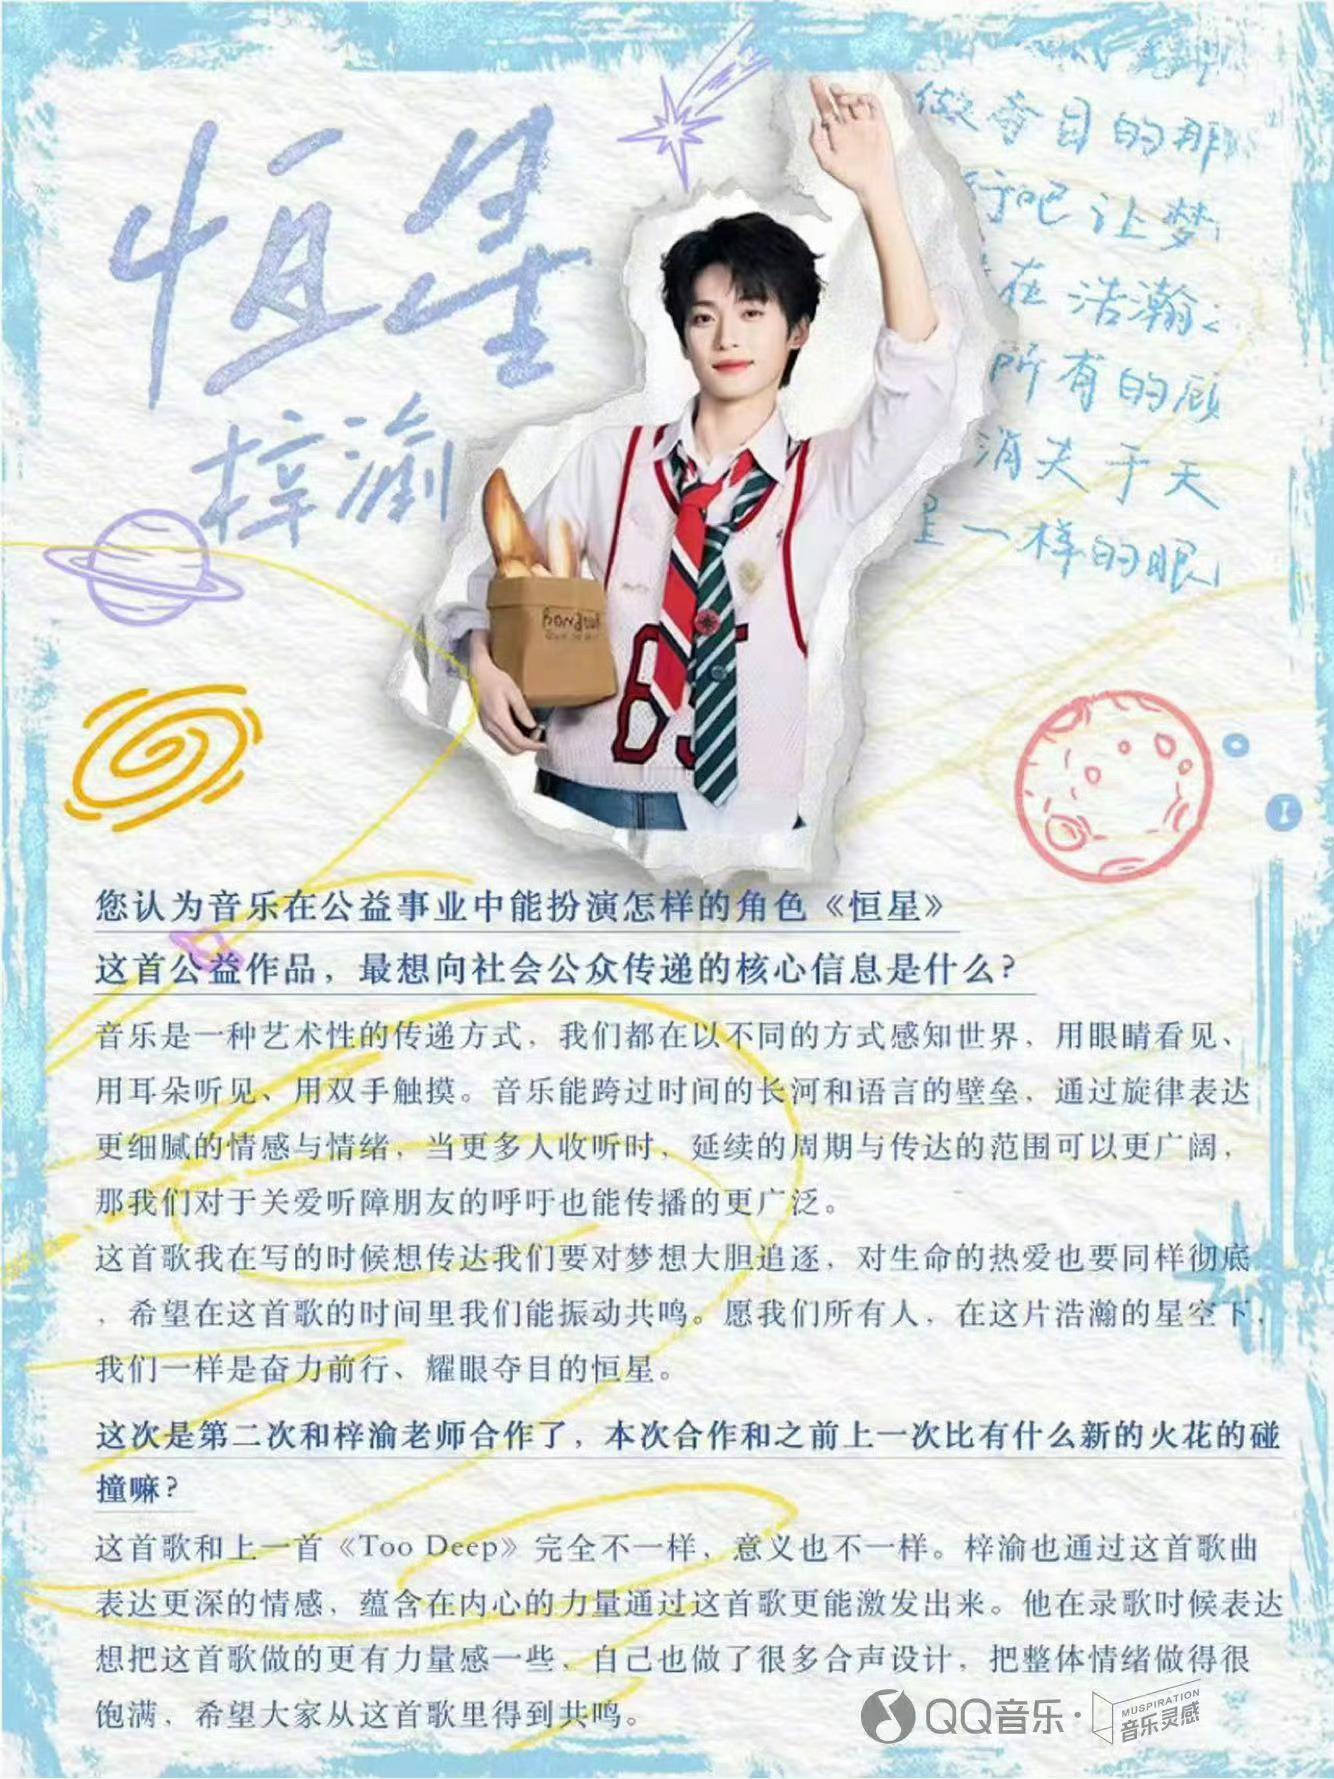 恒星
梓渝
做夺目的那
行吧让梦
在浩瀚
所有的顾
消失于天
星一样的眼
您认为音乐在公益事业中能扮演怎样的角色《恒星》
这首公益作品，最想向社会公众传递的核心信息是什么？
音乐是一种艺术性的传递方式，我们都在以不同的方式感知世界，用眼睛看见、
用耳朵听见、用双手触摸。音乐能跨过时间的长河和语言的壁垒，通过旋律表达
更细腻的情感与情绪，当更多人收听时，延续的周期与传达的范围可以更广阔，
那我们对于关爱听障朋友的呼吁也能传播的更广泛。
这首歌我在写的时候想传达我们要对梦想大胆追逐，对生命的热爱也要同样彻底
，希望在这首歌的时间里我们能振动共鸣。愿我们所有人，在这片浩瀚的星空下，
我们一样是奋力前行、耀眼夺目的恒星。
这次是第二次和梓渝老师合作了，本次合作和之前上一次比有什么新的火花的碰
撞嘛？
这首歌和上一首《Too Deep》完全不一样，意义也不一样。梓渝也通过这首歌曲
表达更深的情感，蕴含在内心的力量通过这首歌更能激发出来。他在录歌时候表达
想把这首歌做的更有力量感一些，自己也做了很多合声设计，把整体情绪做得很
饱满，希望大家从这首歌里得到共鸣。
QQ音乐·
MUSPIRATION
音乐灵感